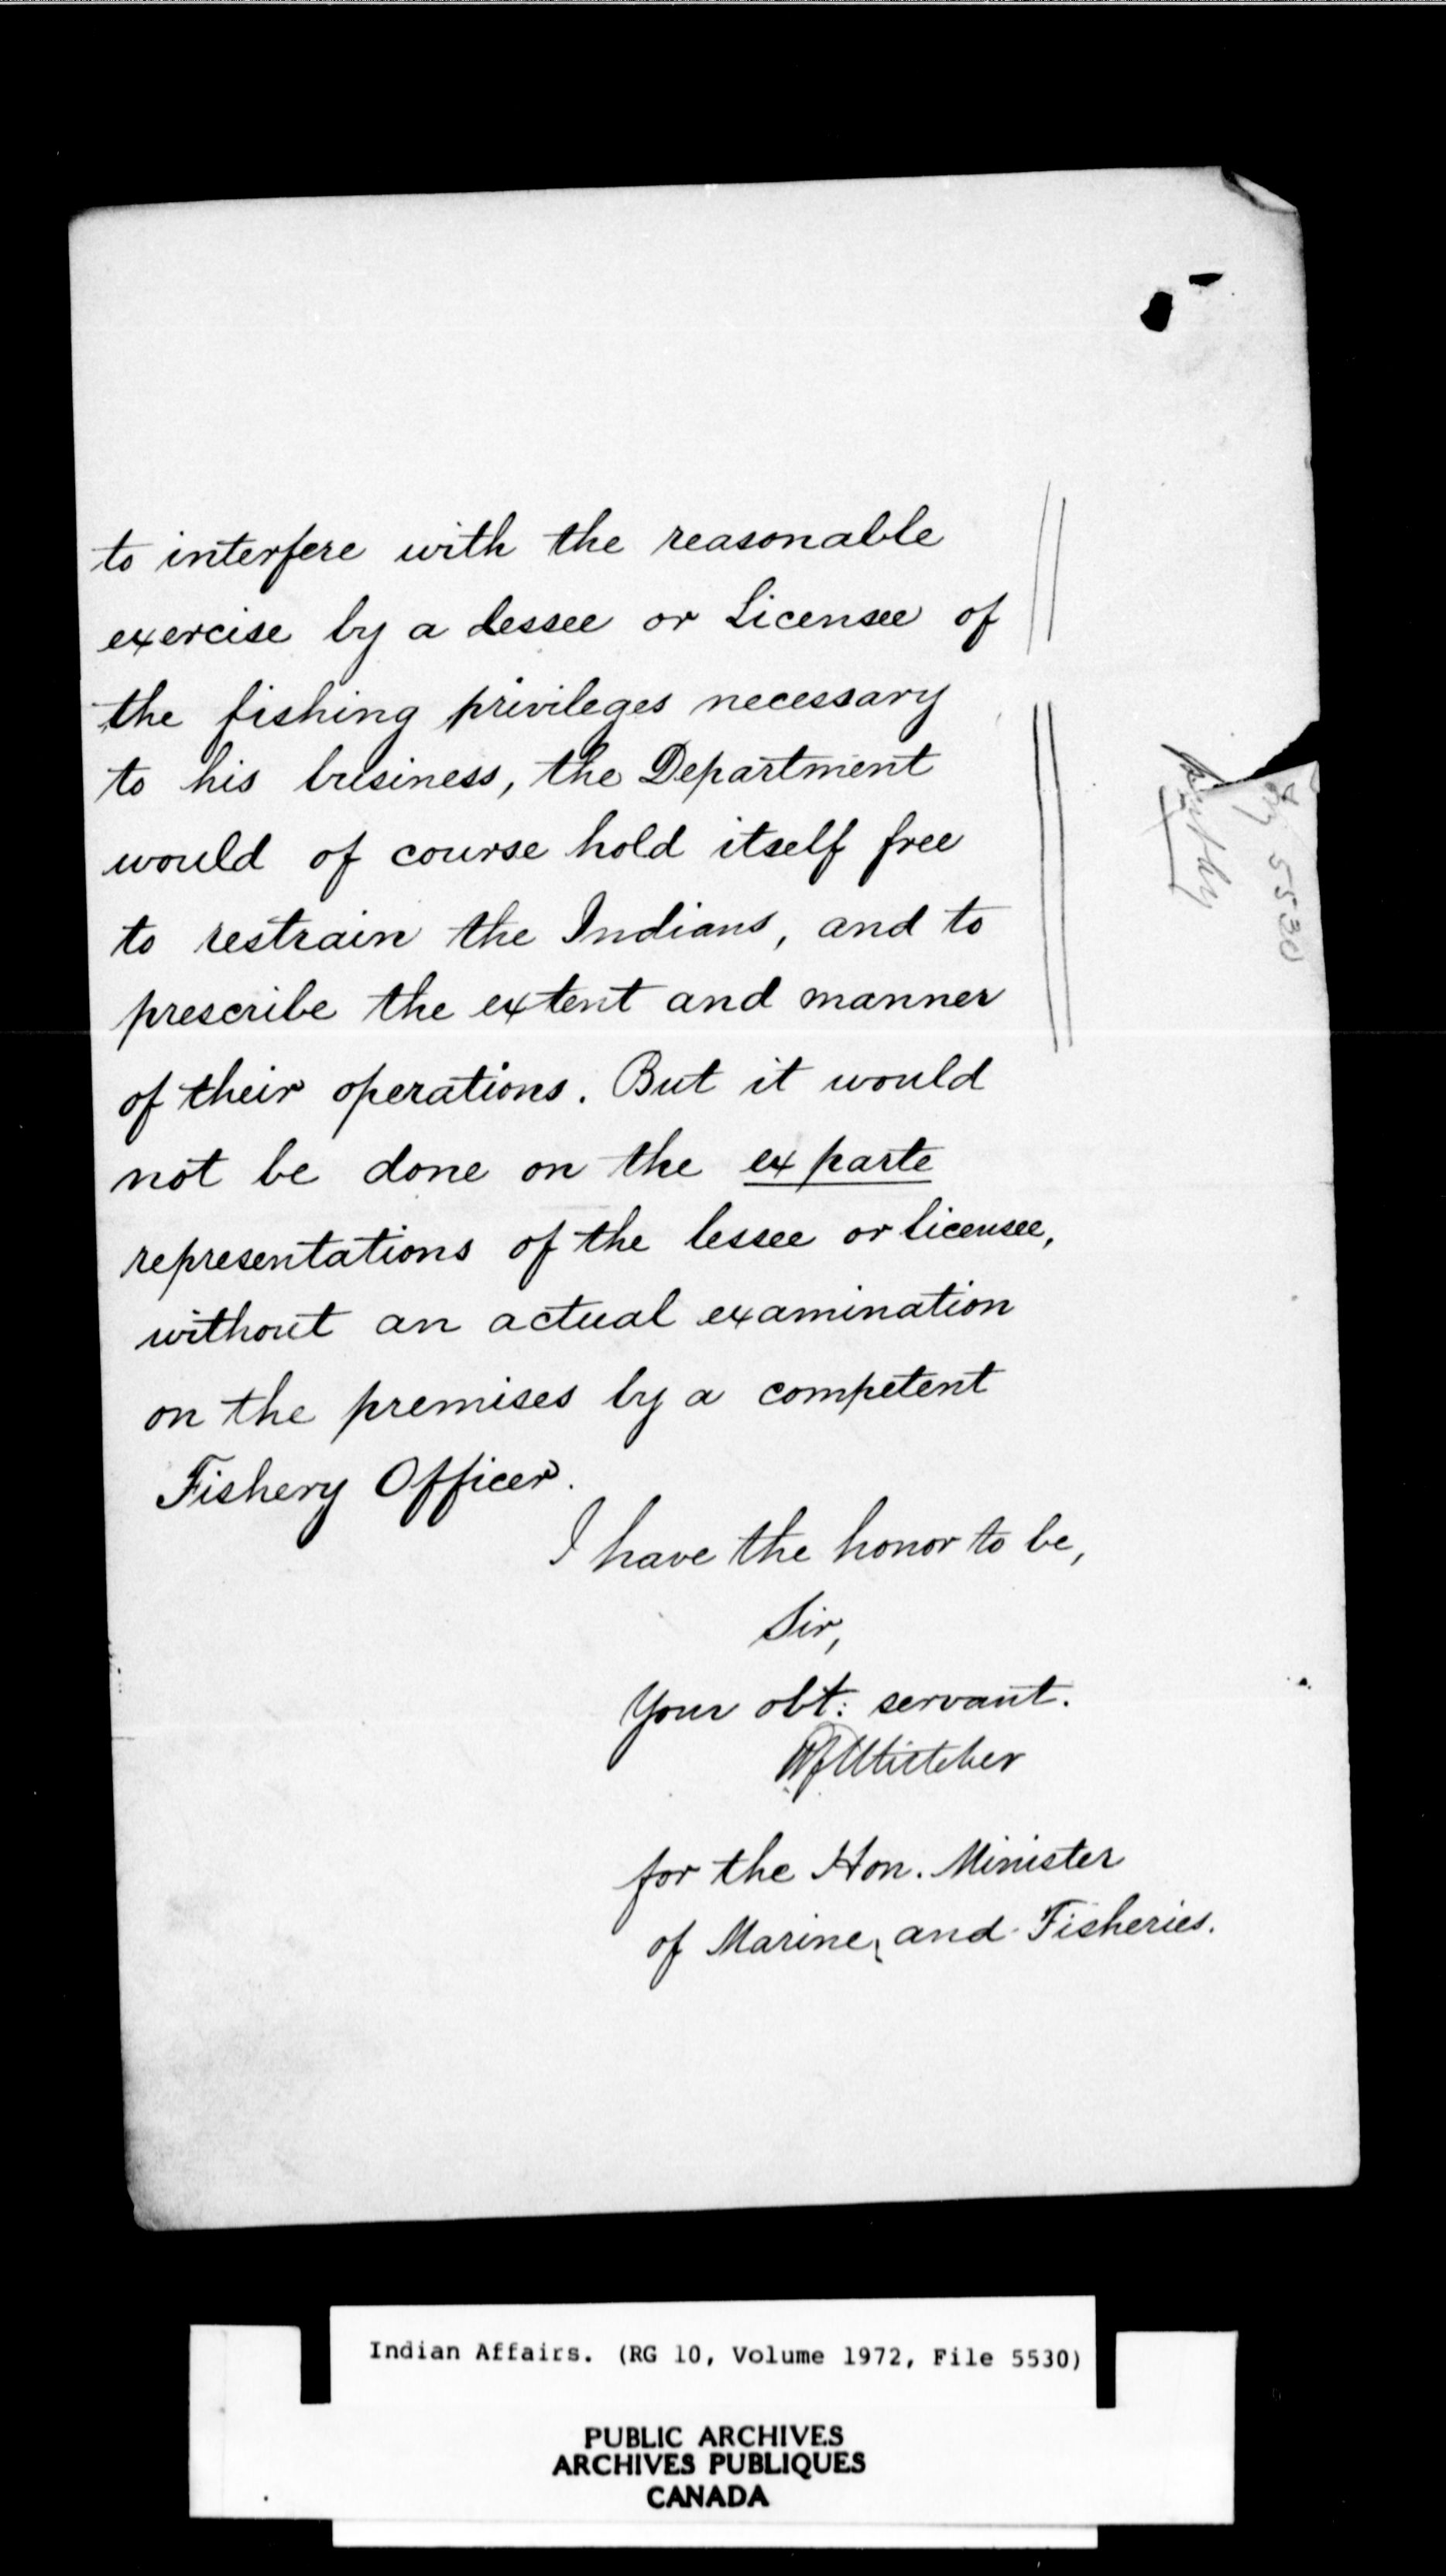 to interfere with the reasonable
exercise by a lessee or Licensee of
the fishing privileges necessary
to his business, the Department
would of course hold itself free
to restrain the Indians, and to
prescribe the extent and manner
of their operations. But it would
not be done on the ex parte
representations of the lessee or licensee,
without an actual examination
on the premises by a competent
Fishery Officer.
I have the honor to be,
Sir,
Your obt: servant.
WF Whitcher
for the Hon. Minister
of Marine, and Fisheries.
5530
Indian Affairs. (RG 10, Volume 1972, File 5530)
PUBLIC ARCHIVES
ARCHIVES PUBLIQUES
CANADA